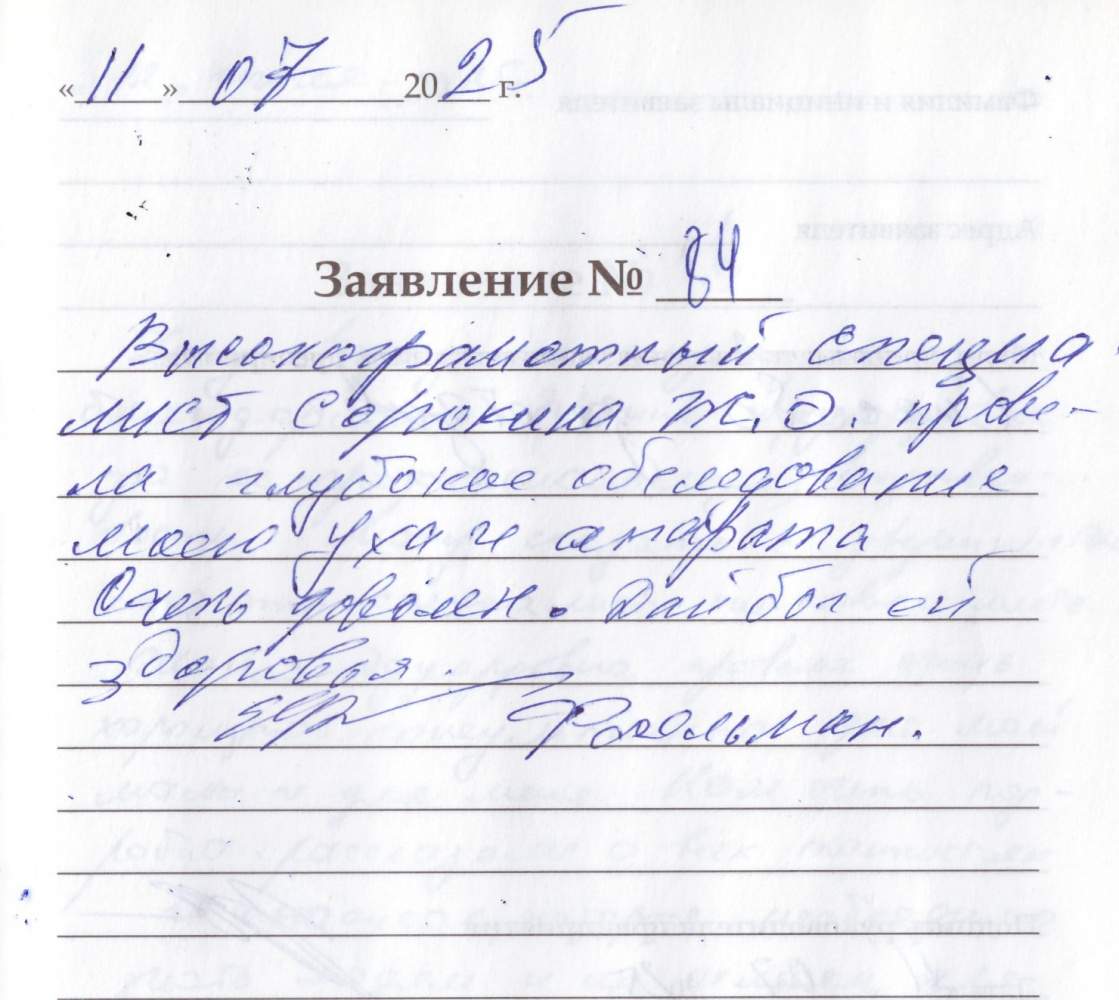 «11» 07 2025 г.
Заявление № 84
Высокограмотный специа-
лист Сорокина Ж.Э. прове-
ла глубокое обследование
моего уха и апарата
Очень доволен. Дай бог ей
здоровья